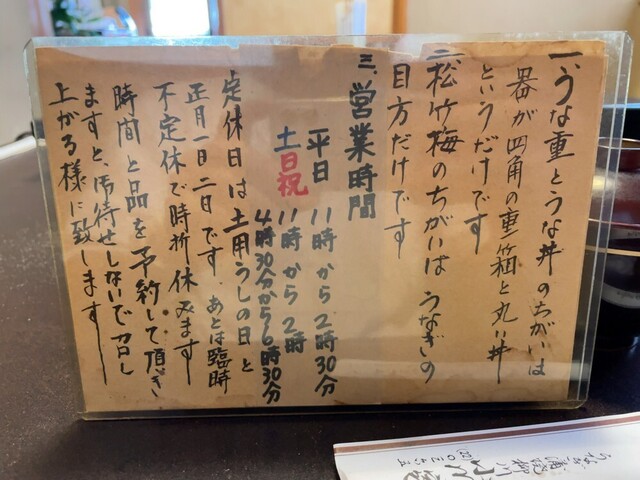 一、うな重とうな丼のちがいは
器が四角の重箱と丸い丼
というだけです
二、松竹梅のちがいは うなぎの
目方だけです
三、営業時間
平日 11時から2時30分
土日祝 11時から2時
4時30分から6時30分
定休日は土用うしの日と
正月一日二日です。あとは臨時
不定休で時折休みます
時間と品を予約して頂き
ますと、お待せしないで召し
上がる様に致します